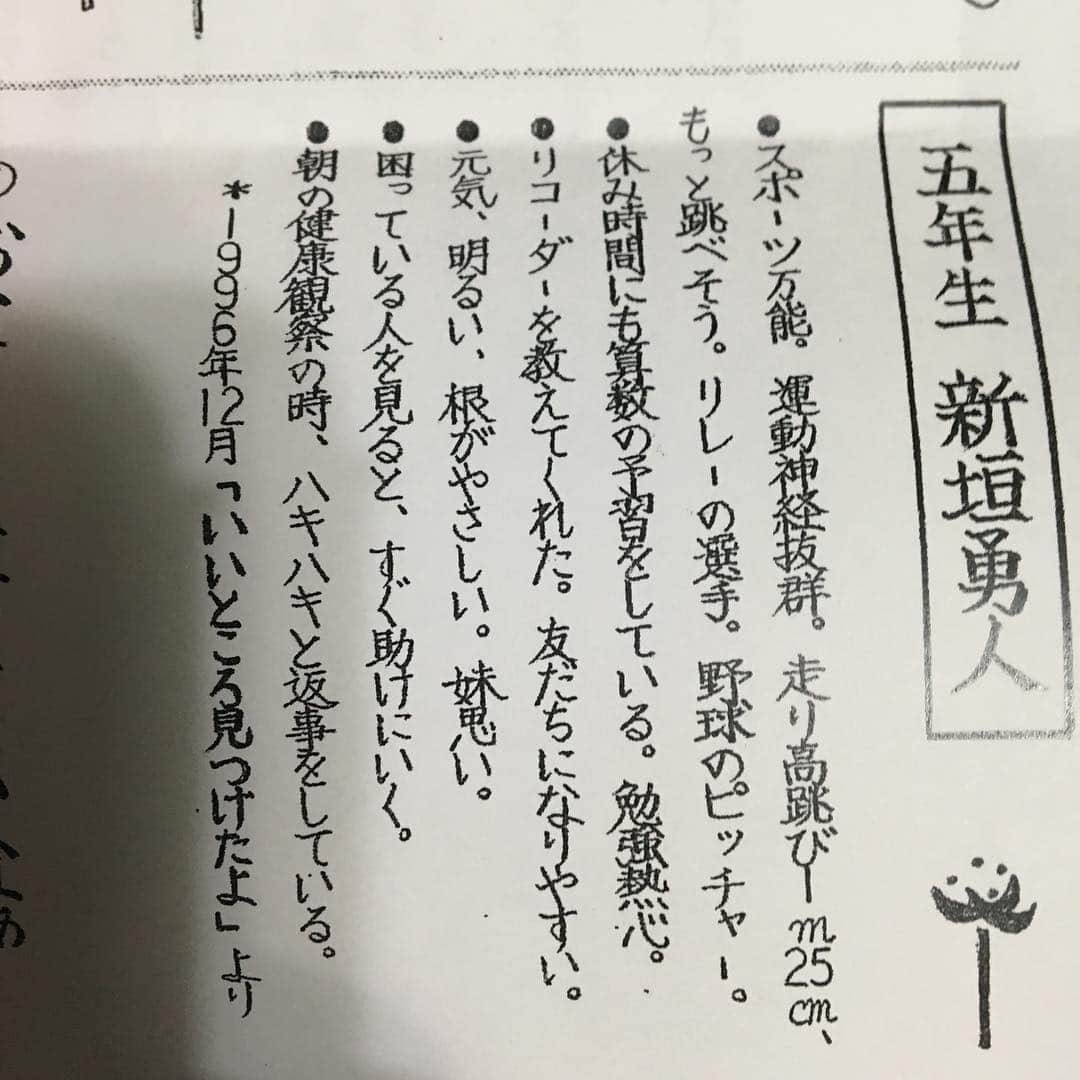 五年生 新垣勇人
●スポーツ万能。運動神経抜群。走り高跳び1m25cm、
もっと跳べそう。リレーの選手。野球のピッチャー。
●休み時間にも算数の予習をしている。勉強熱心。
●リコーダーを教えてくれた。友だちになりやすい。
●元気、明るい、根がやさしい。妹思い。
●困っている人を見ると、すぐ助けにいく。
●朝の健康観察の時、ハキハキと返事をしている。
＊1996年12月「いいところ見つけたよ」より